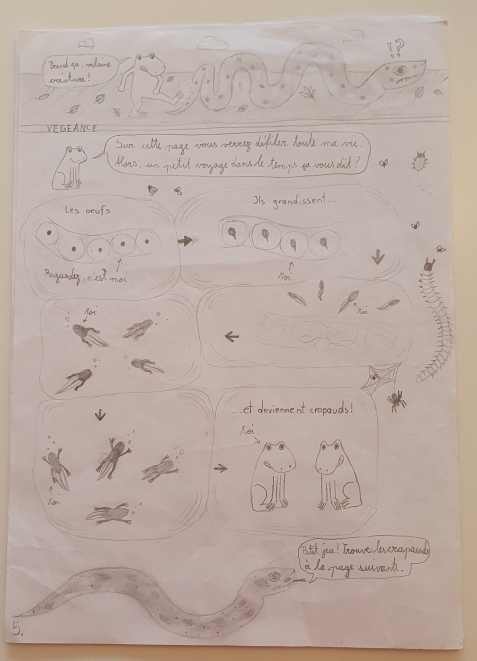 Prend ça, vilaine
créature !
!?
VEGEANCE
Sur cette page vous verrez défiler toute ma vie.
Alors, un petit voyage dans le temps ça vous dit ?
Les oeufs
Regardez, c'est moi
Ils grandissent...
Moi
Moi
Moi
Moi
...et deviennent crapauds!
Moi
Petit jeu! Trouve les crapauds
à la page suivante.
5.